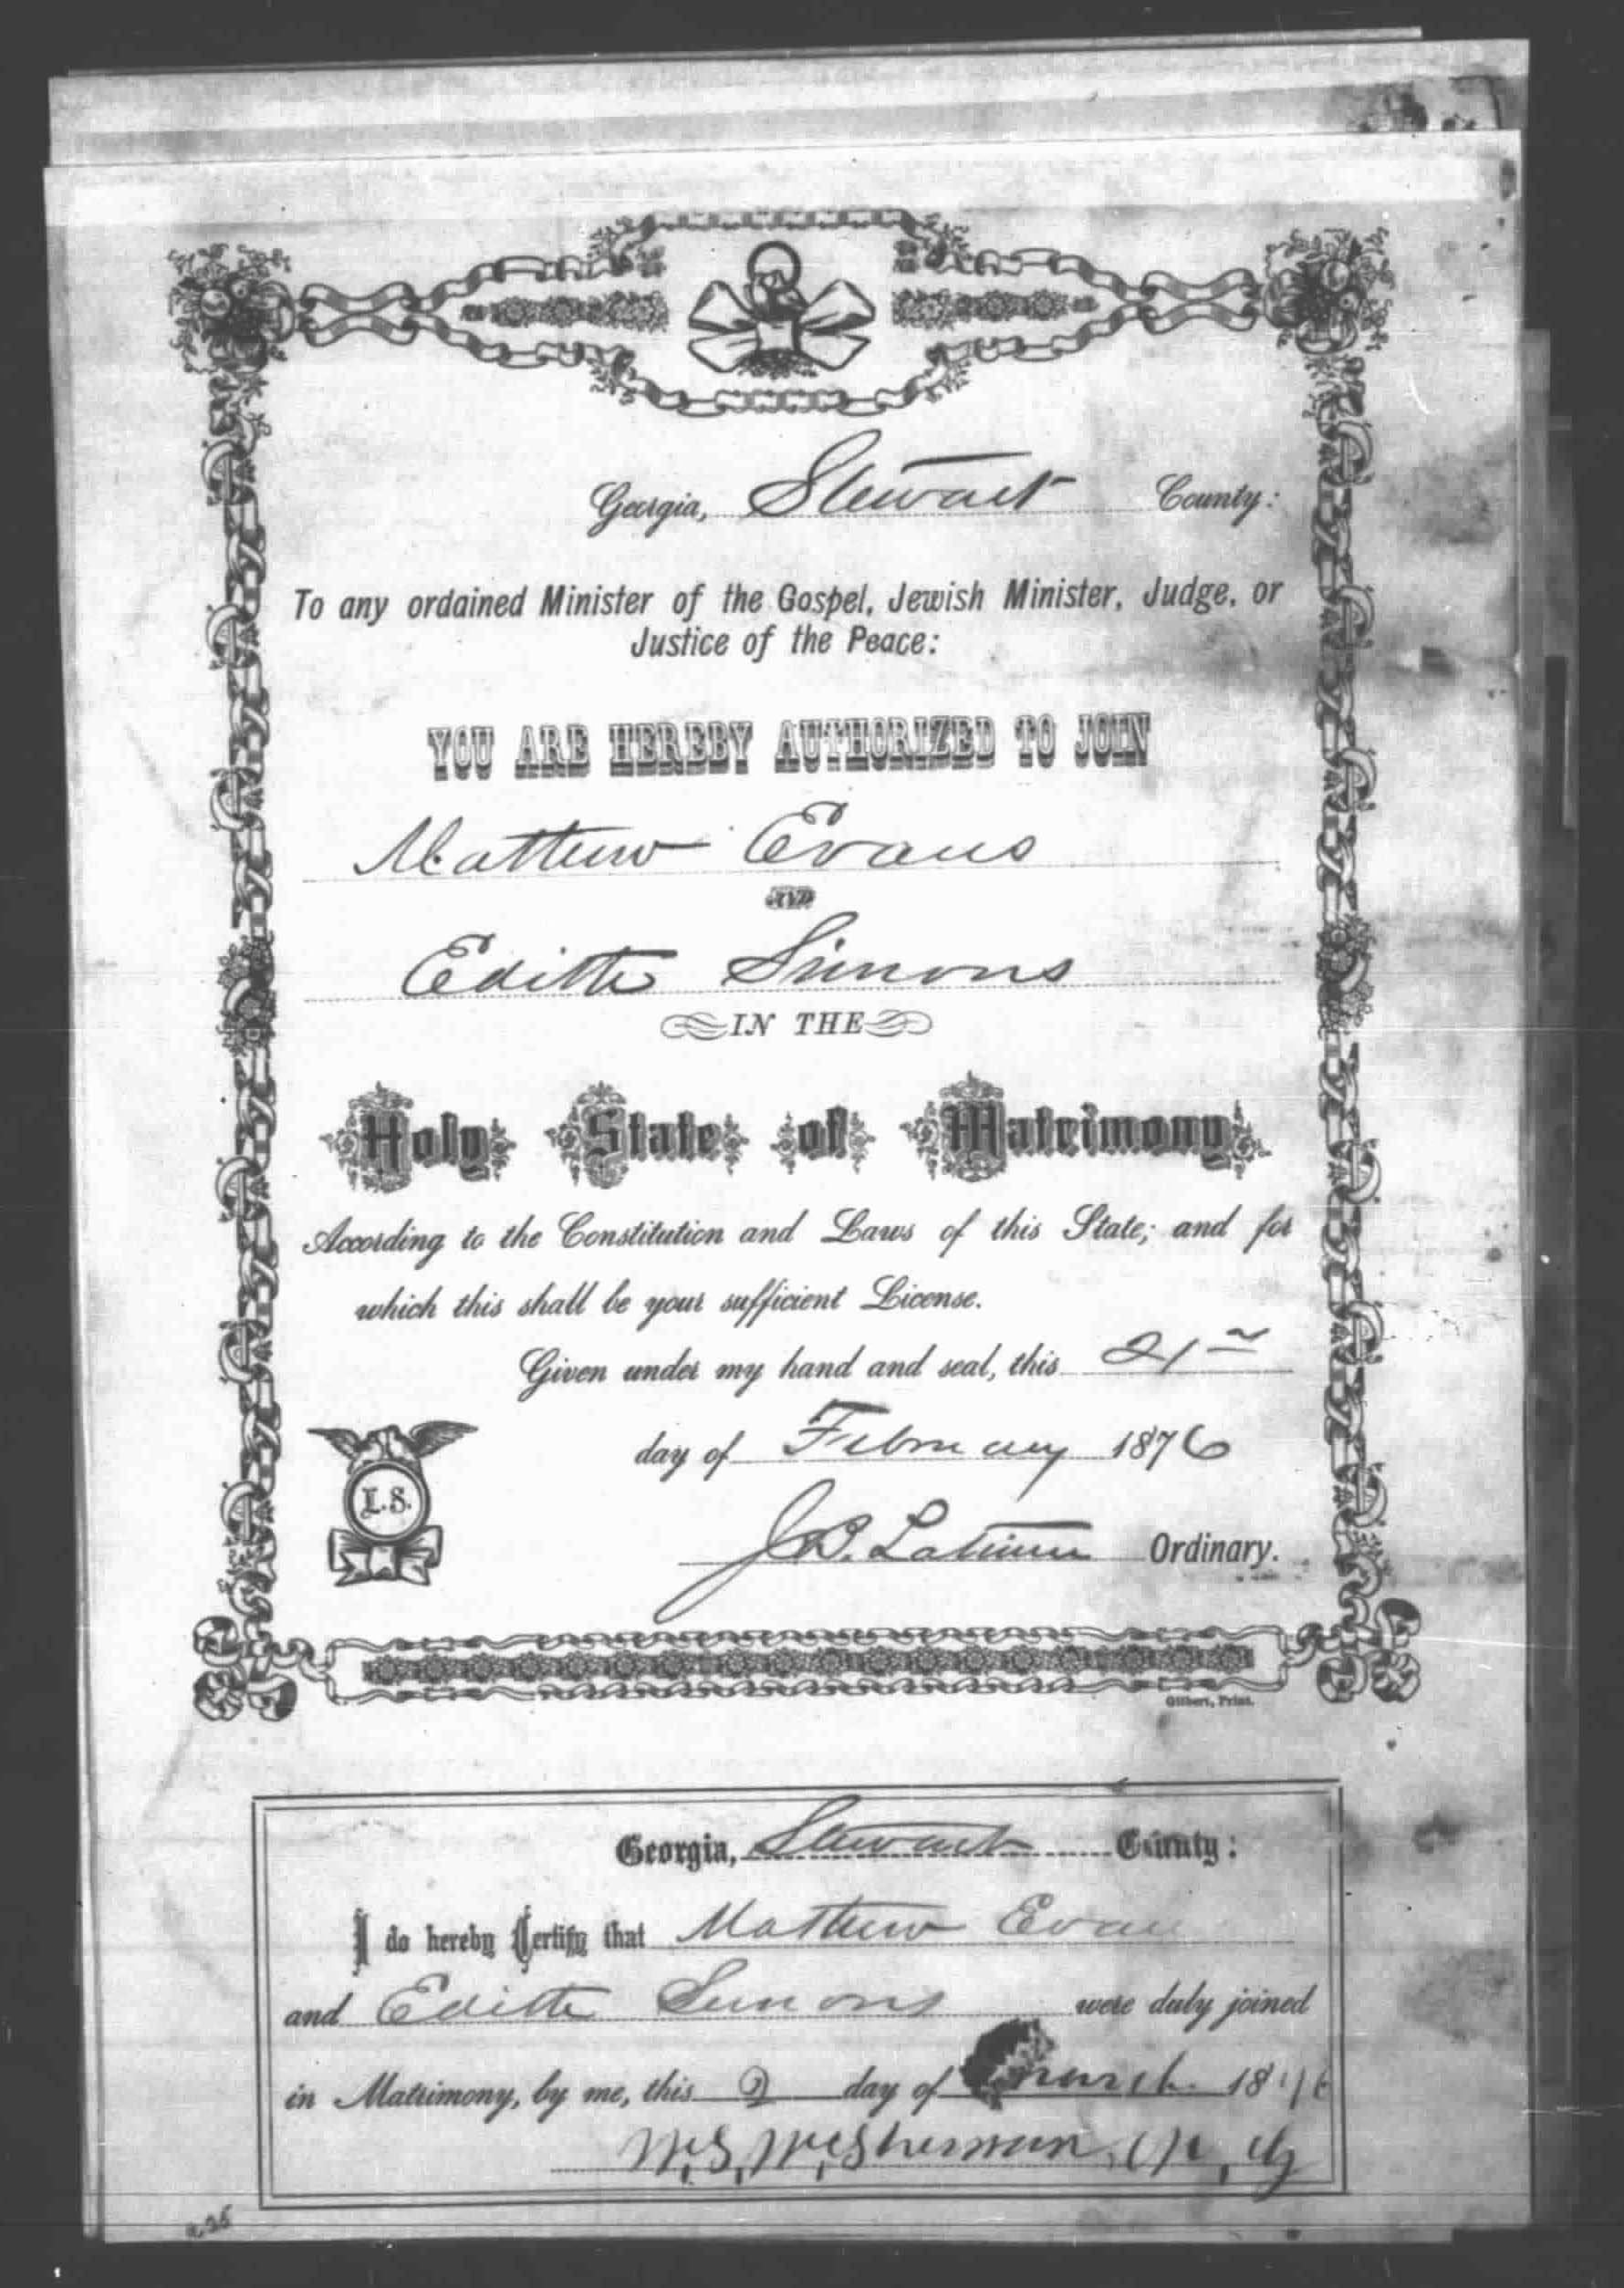 Georgia, Stewart County:
To any ordained Minister of the Gospel, Jewish Minister, Judge, or
Justice of the Peace:
YOU ARE HEREBY AUTHORIZED TO JOIN
Matthew Evans
AND
Edith Simons
IN THE
Holy State of Matrimony
According to the Constitution and Laws of this State; and for
which this shall be your sufficient License.
Given under my hand and seal, this 21st
day of February 1876
L.S.
J.B. Latimer Ordinary.
Gilbert, Print.
Georgia, Stewart County:
I do hereby Certify that Mathew Evans
and Edith Simons were duly joined
in Matrimony, by me, this 2 day of March 1876
W.S.